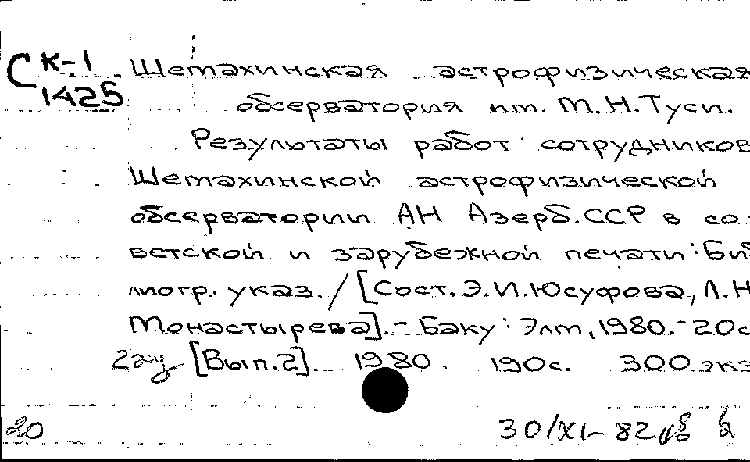 С К-1 Шемахинская астрофизическая
1425 обсерватория им. М.Н.Туси.
Результаты работ сотрудников
Шемахинской астрофизической
обсерватории АН Азерб.ССР в со-
ветской и зарубежной печати: Биб
лиогр. указ. / [Сост. Э.И.Юсуфова, Л.Н
Монастырева]. - Баку: Элм, 1980. - 20с
[Вып.2]. 1980. 190с. 300 экз
20 30/XI-82